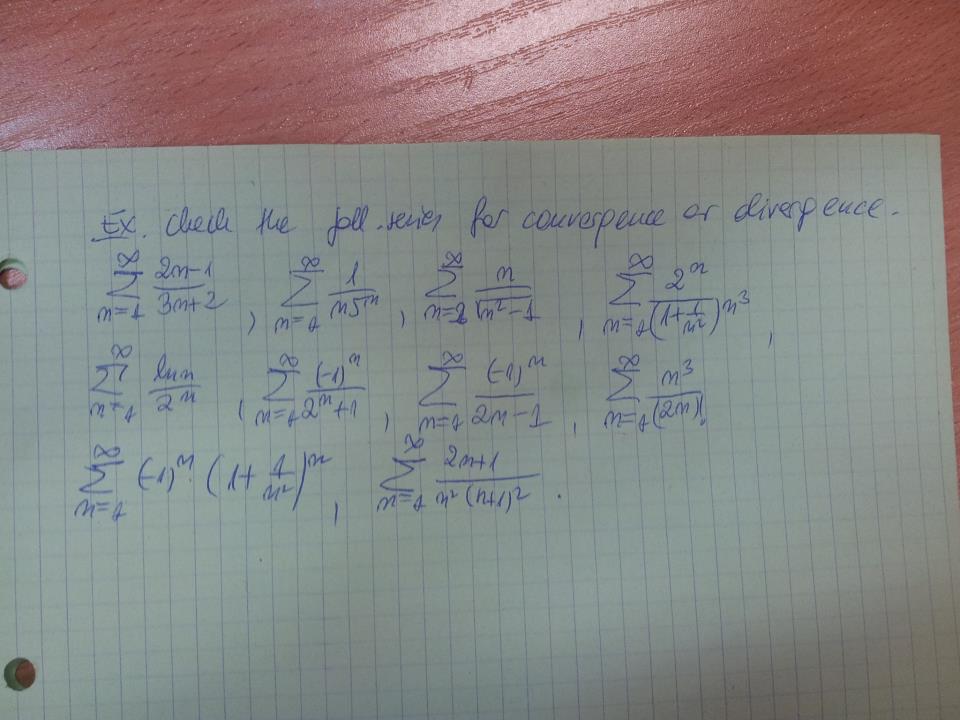 Ex. Check the foll. series for convergence or divergence.
∑_{n=1}^{∞} (2n-1)/(3n+2) , ∑_{n=1}^{∞} 1/(n5^n) , ∑_{n=2}^{∞} n/√(n²-1) , ∑_{n=1}^{∞} 2^n/(1+1/n²)^{n³} ,
∑_{n=1}^{∞} ln n/2^n , ∑_{n=1}^{∞} (-1)^n/(2^n+1) , ∑_{n=1}^{∞} (-1)^n/(2n-1) , ∑_{n=1}^{∞} n³/(2n)!
∑_{n=1}^{∞} (-1)^n · (1+1/n²)^n , ∑_{n=1}^{∞} (2n+1)/(n²(n+1)²) .